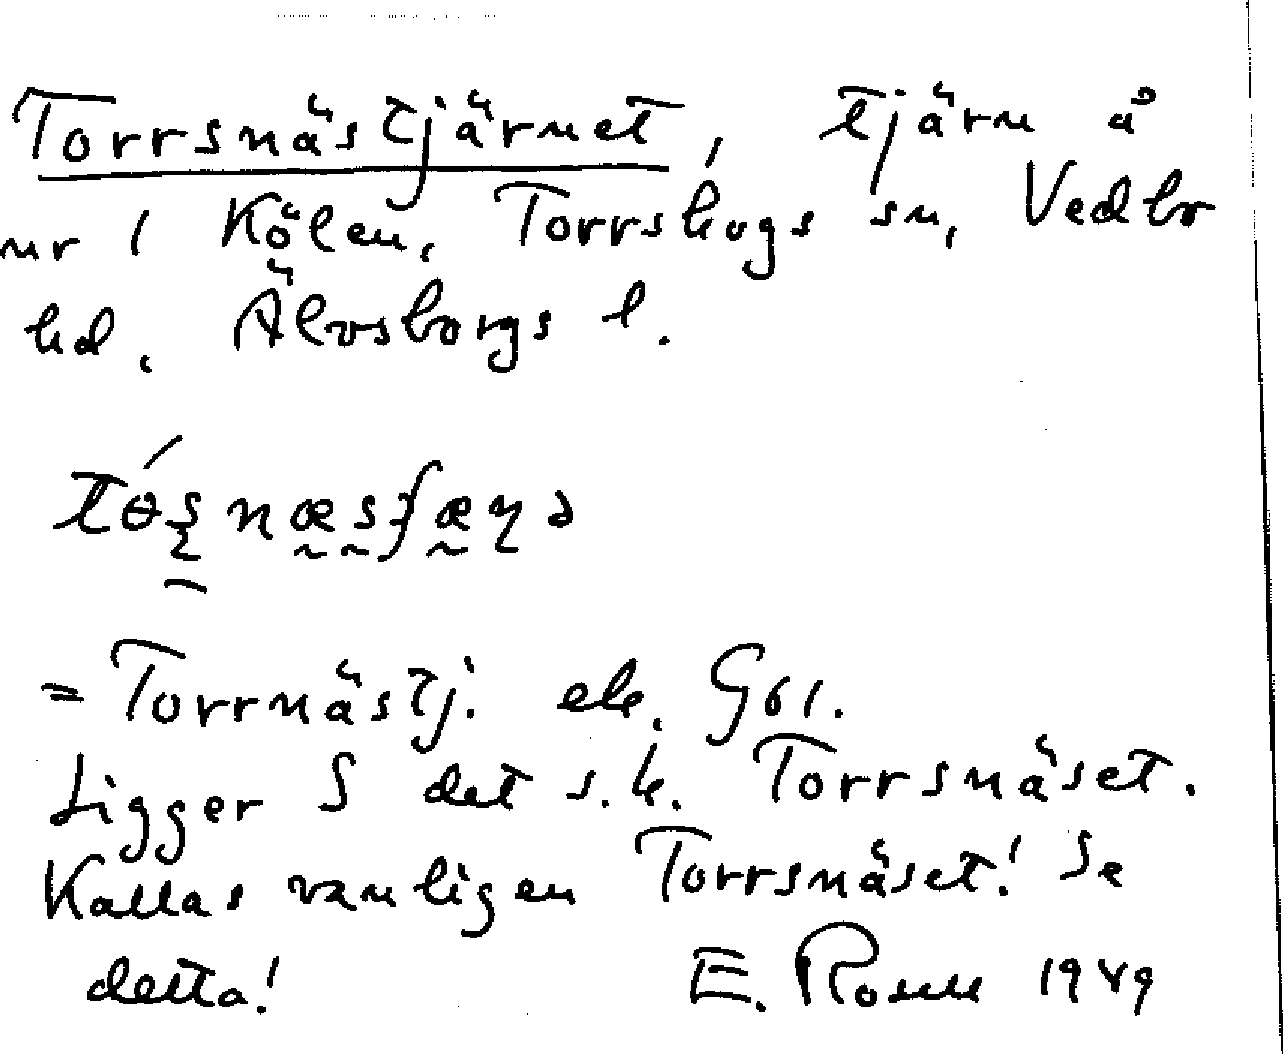 Torrsnästjärnet, tjärn å
nr 1 Kölen, Torrskogs sn, Vedbo
hd, Älvsborgs l.
= Torrnästj. ek. G61.
Ligger S det s.k. Torrsnäset.
Kallas vanligen Torrsnäset! Se
detta!
E. Rosell 1949